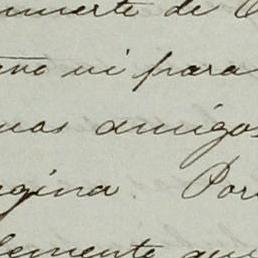 muerte de
ni para
amigos
gina. Por
lemente que